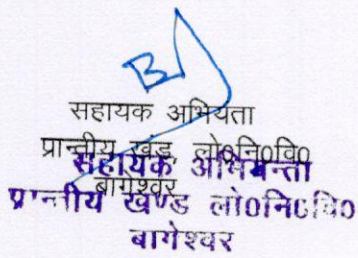 सहायक अभियंता
प्रान्तीय खंड, लो०नि०वि०
सहायक अभियन्ता
बागेश्वर
प्रान्तीय खण्ड लो०नि०वि०
बागेश्वर